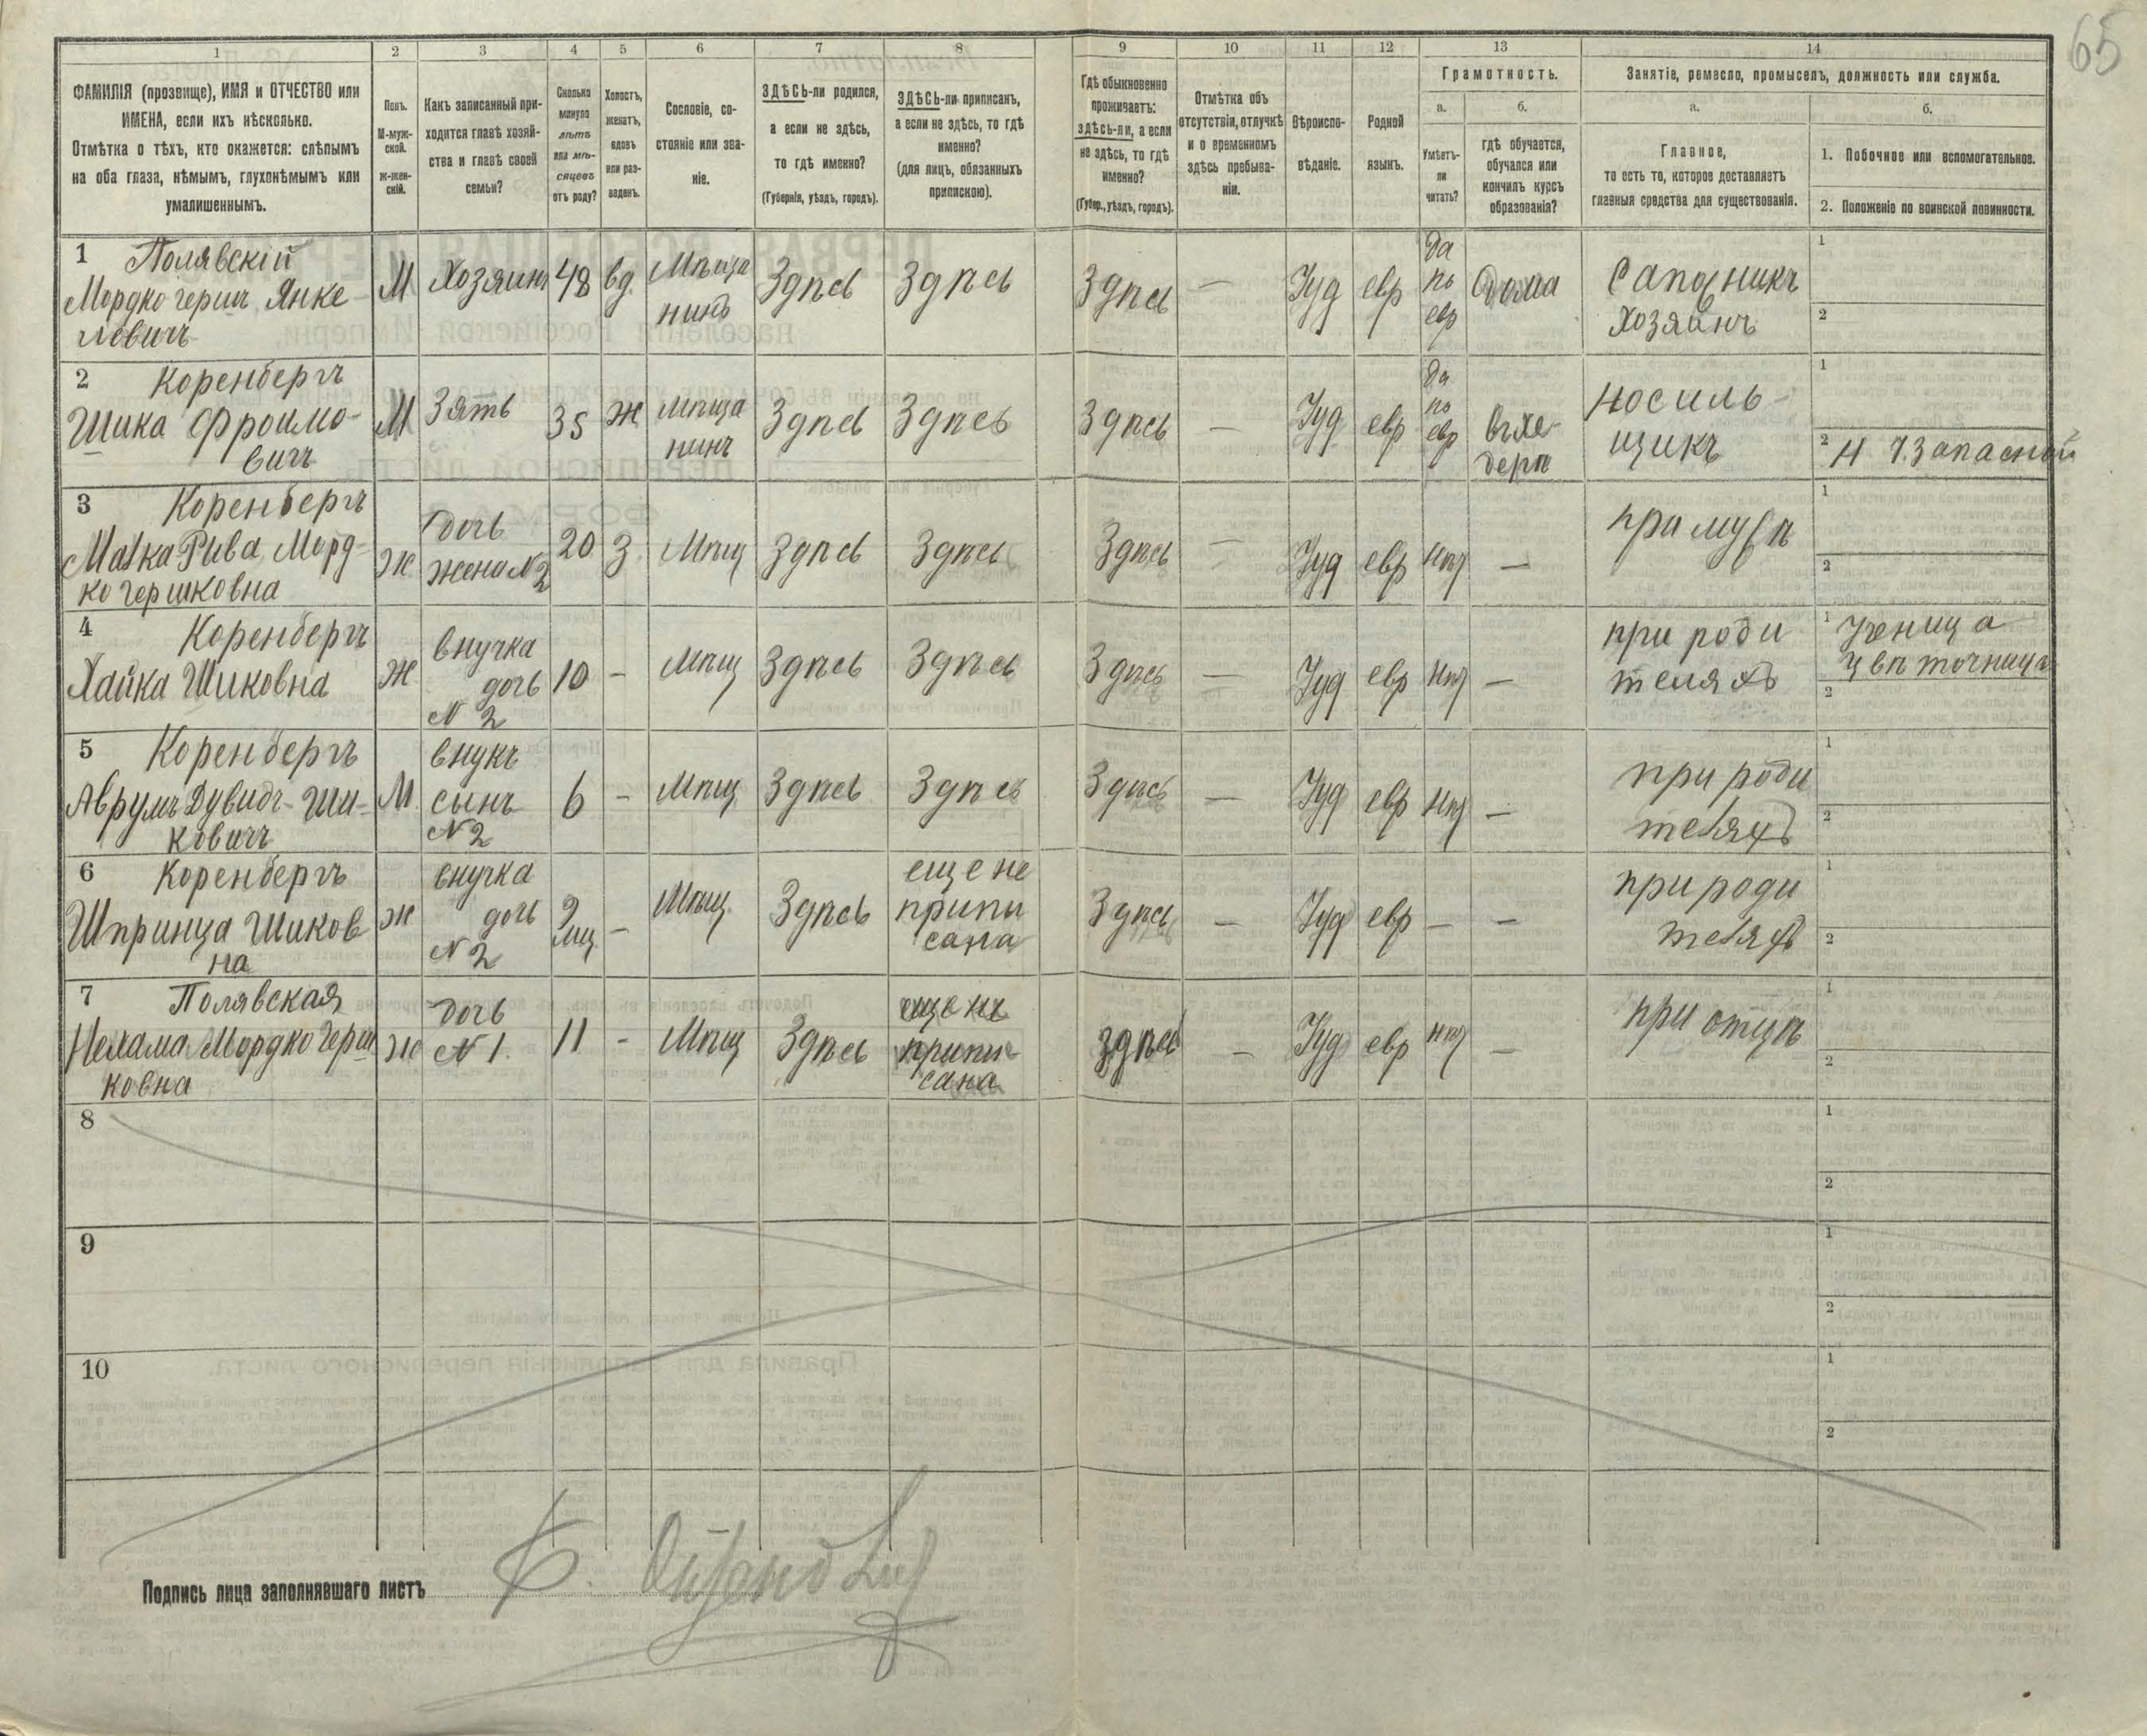 65
1 2 3 4 5 6 7 8 9 10 11 12 13 14
ФАМИЛІЯ (прозвище), ИМЯ и ОТЧЕСТВО или
ИМЕНА, если ихъ нѣсколько.
Отмѣтка о тѣхъ, кто окажется: слѣпымъ
на оба глаза, нѣмымъ, глухонѣмымъ или
умалишеннымъ.
Полъ.
М-муж-
ской.
ж-жен-
скій.
Какъ записанный при-
ходится главѣ хозяй-
ства и главѣ своей
семьи?
Сколько
минуло
лѣтъ
или мѣ-
сяцевъ
отъ роду?
Холостъ,
женатъ,
вдовъ
или раз-
веденъ.
Сословіе, со-
стояніе или зва-
ніе.
ЗДѢСЬ-ли родился,
а если не здѣсь,
то гдѣ именно?
(Губернія, уѣздъ, городъ).
ЗДѢСЬ-ли приписанъ,
а если не здѣсь, то гдѣ
именно?
(для лицъ, обязанныхъ
припискою).
Гдѣ обыкновенно
проживаетъ:
здѣсь-ли, а если
не здѣсь, то гдѣ
именно?
(Губер., уѣздъ, городъ).
Отмѣтка объ
отсутствіи, отлучкѣ
и о временномъ
здѣсь пребыва-
ніи.
Вѣроиспо-
вѣданіе.
Родной
языкъ.
Грамотность.
а. б.
Умѣетъ-
ли
читать?
гдѣ обучается,
обучался или
кончилъ курсъ
образованія?
Занятіе, ремесло, промыселъ, должность или служба.
а. б.
Главное,
то есть то, которое доставляетъ
главныя средства для существованія.
1. Побочное или вспомогательное.
2. Положеніе по воинской повинности.
1 Полявскій
Мордко Герш Янке
левичъ
М
Хозяинъ
48
вд
Мѣща
нинъ
Здѣсь
Здѣсь
Здѣсь
—
Іуд
евр
да
по
евр
Дома
Сапожникъ
Хозяинъ
1
2
2 Коренбергъ
Шика Фроимо-
вичъ
М
Зять
35
ж
мѣща
нинъ
Здѣсь
Здѣсь
Здѣсь
—
Іуд
евр
да
по
евр
въ хе-
дерѣ
Носиль-
щикъ
1
2 Н ч. Запасной
3 Коренбергъ
Малка Рива Морд-
ко Гершковна
Ж
дочь
жена N 2
20
З
Мѣщ
Здѣсь
Здѣсь
Здѣсь
—
Іуд
евр
Нѣт
—
при мужѣ
1
2
4 Коренбергъ
Хайка Шиковна
Ж
внучка
дочь
N 2
10
-
Мѣщ
Здѣсь
Здѣсь
Здѣсь
—
Іуд
евр
Нѣт
—
при роди
теляхъ
1 Ученица
цвѣточница
2
5 Коренбергъ
Аврумъ Дувидъ Ши-
ковичъ
М
внукъ
сынъ
N 2
6
-
Мѣщ
Здѣсь
Здѣсь
Здѣсь
—
Іуд
евр
Нѣт
—
при роди
теляхъ
1
2
6 Коренбергъ
Шпринца Шиков
на
Ж
внучка
дочь
N 2
9
мц
-
Мѣщ
Здѣсь
еще не
припи
сана
Здѣсь
—
Іуд
евр
—
—
при роди
теляхъ
1
2
7 Полявская
Нехама Мордко Герш
ковна
Ж
дочь
N 1.
11
-
Мѣщ
Здѣсь
еще не
припи-
сана
здѣсь
—
Іуд
евр
нѣт
—
при отцѣ
1
2
8
1
2
9
1
2
10
1
2
Подпись лица заполнявшаго листъ